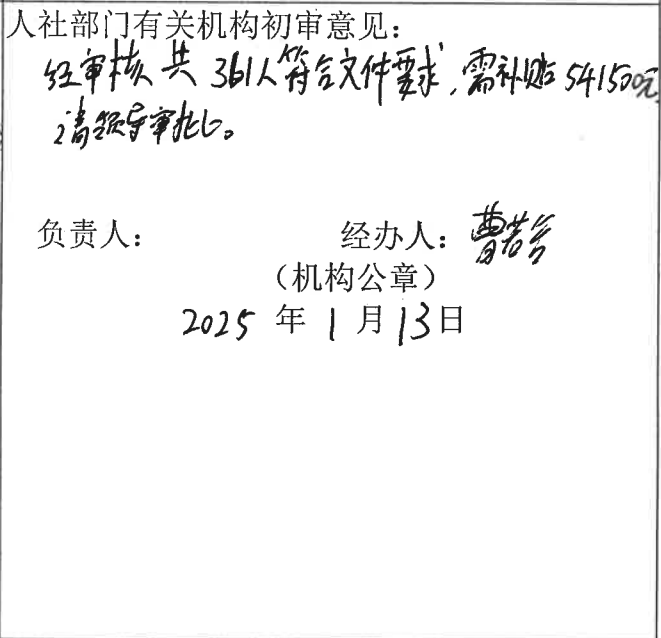 人社部门有关机构初审意见：
经审核共361人符合文件要求,需补贴541500元
请领导审批。
负责人： 经办人：曹若谷
（机构公章）
2025 年 1 月 13 日